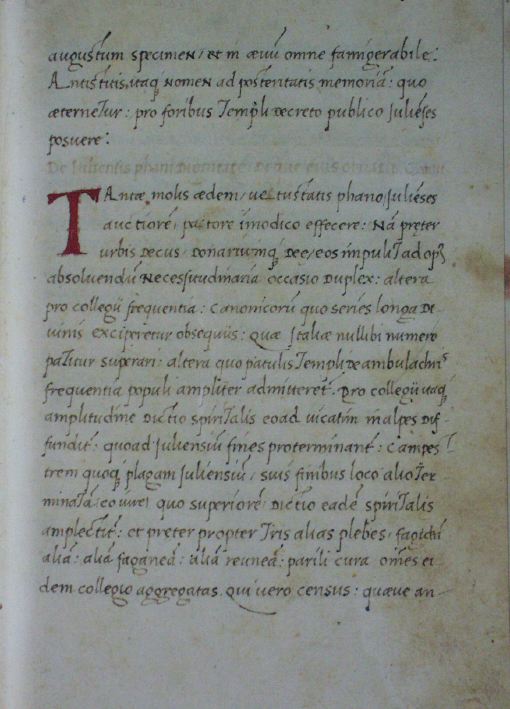 augustum specimen, et in ævū omne famigerabile:
Antistitis, itaq; nomen ad posteritatis memoriā: quo
æternetur: pro foribus Templi decreto publico Juliēses
posuere:
De Juliensis phani
TAntæ molis ædem, vetustatis phano, Juliēses
auctiorē, pastore īmodico effecere: Nā preter
urbis decus donariumq; deę, eos impulit ad opꝰ
absolvendū necessitudinaria occasio duplex: altera
pro collegii frequentia: canonicorū quo series longa di-
vinis exciperetur obsequiis: Quæ Italiæ nullibi numero
patitur superari: altera quo patulis Templi deambulacriis
frequentia populi ampliter admitteret᷑. Pro collegii itaq;
amplitudine dictio spiritalis eoad vicatim in alpes dif-
fundit᷑: quoad Juliensiū fines proterminant᷑: Campes
trem quoq; plagam Juliensiū, suis finibus loco alio ter
minatā, eo iure, quo superiorē, dictio eadē spiritalis
amplectit᷑: et preter propter tris alias plebes, fagidii
aliā: aliā faganeā: aliā reuneā: parili cura omēs ei
dem collegio aggregatas. Qui vero census: quæve an-